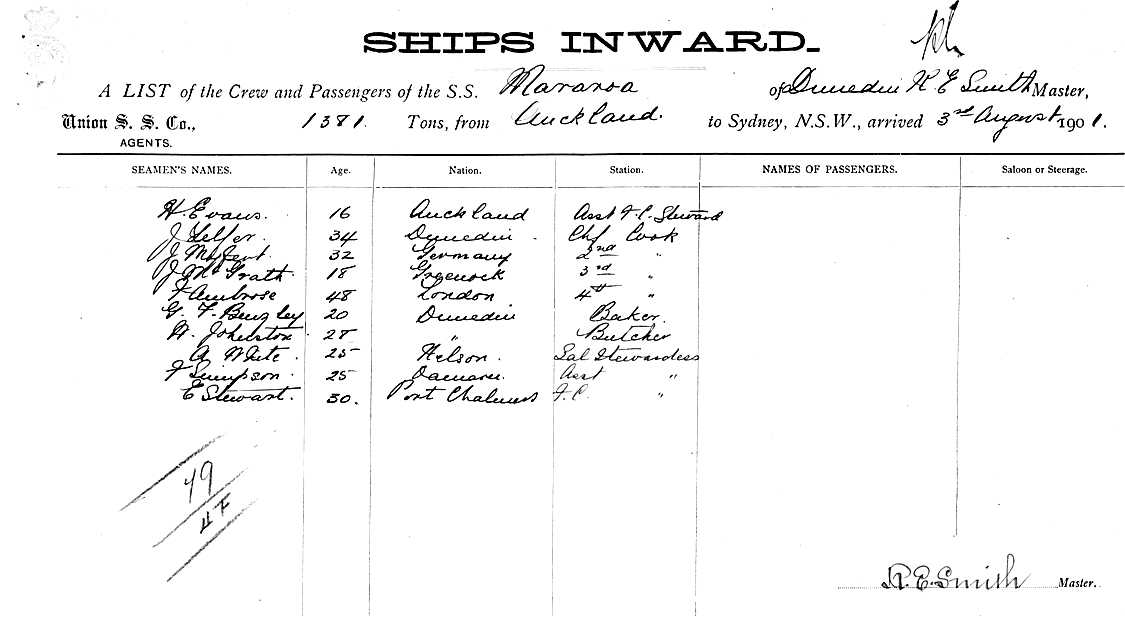 SHIPS INWARD.
A LIST of the Crew and Passengers of the S.S. Mararoa of Dunedin R. E Smith Master,
Union S. S. Co., 1381. Tons, from Auckland. to Sydney, N.S.W., arrived 3rd August 1901.
AGENTS.
SEAMEN'S NAMES. Age. Nation. Station. NAMES OF PASSENGERS. Saloon or Steerage.
H. Evans. 16 Auckland Asst F.C. Steward
J Telfer. 34 Dunedin. Chf Cook
J 32 Germany 2nd "
J McGrath. 18 Greenock 3rd "
F Ambrose 48 London 4th "
G. F. 20 Dunedin Baker.
H. Johnston 28 " Butcher
A White. 25 Nelson. Sal Stewardess
F Simpson. 25 Oamaru. Asst "
E Stewart. 30. Port Chalmers F.C. "
49
R. E. Smith Master.